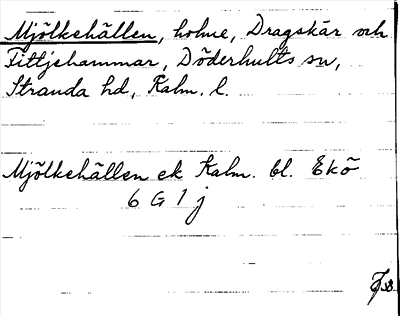 Mjölkehällen, holme, Dragskär och
Fittjehammar, Döderhults sn,
Stranda hd, Kalm. l.
Mjölkehällen ek Kalm. bl. Ekö
6 G 1 j